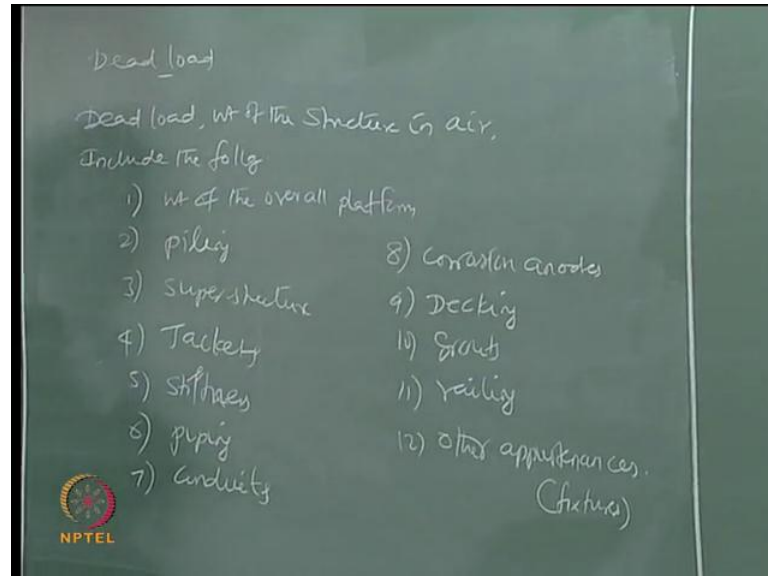 Dead load
Dead load, wt of the Structure in air,
Include the follg
1) wt of the overall platform,
2) piling
3) superstructure
4) Jackets
5) stiffners
6) piping
7) conduits
8) corrosion anodes
9) Decking
10) Grouts
11) railing
12) other appurtenances.
(fixtures)
NPTEL